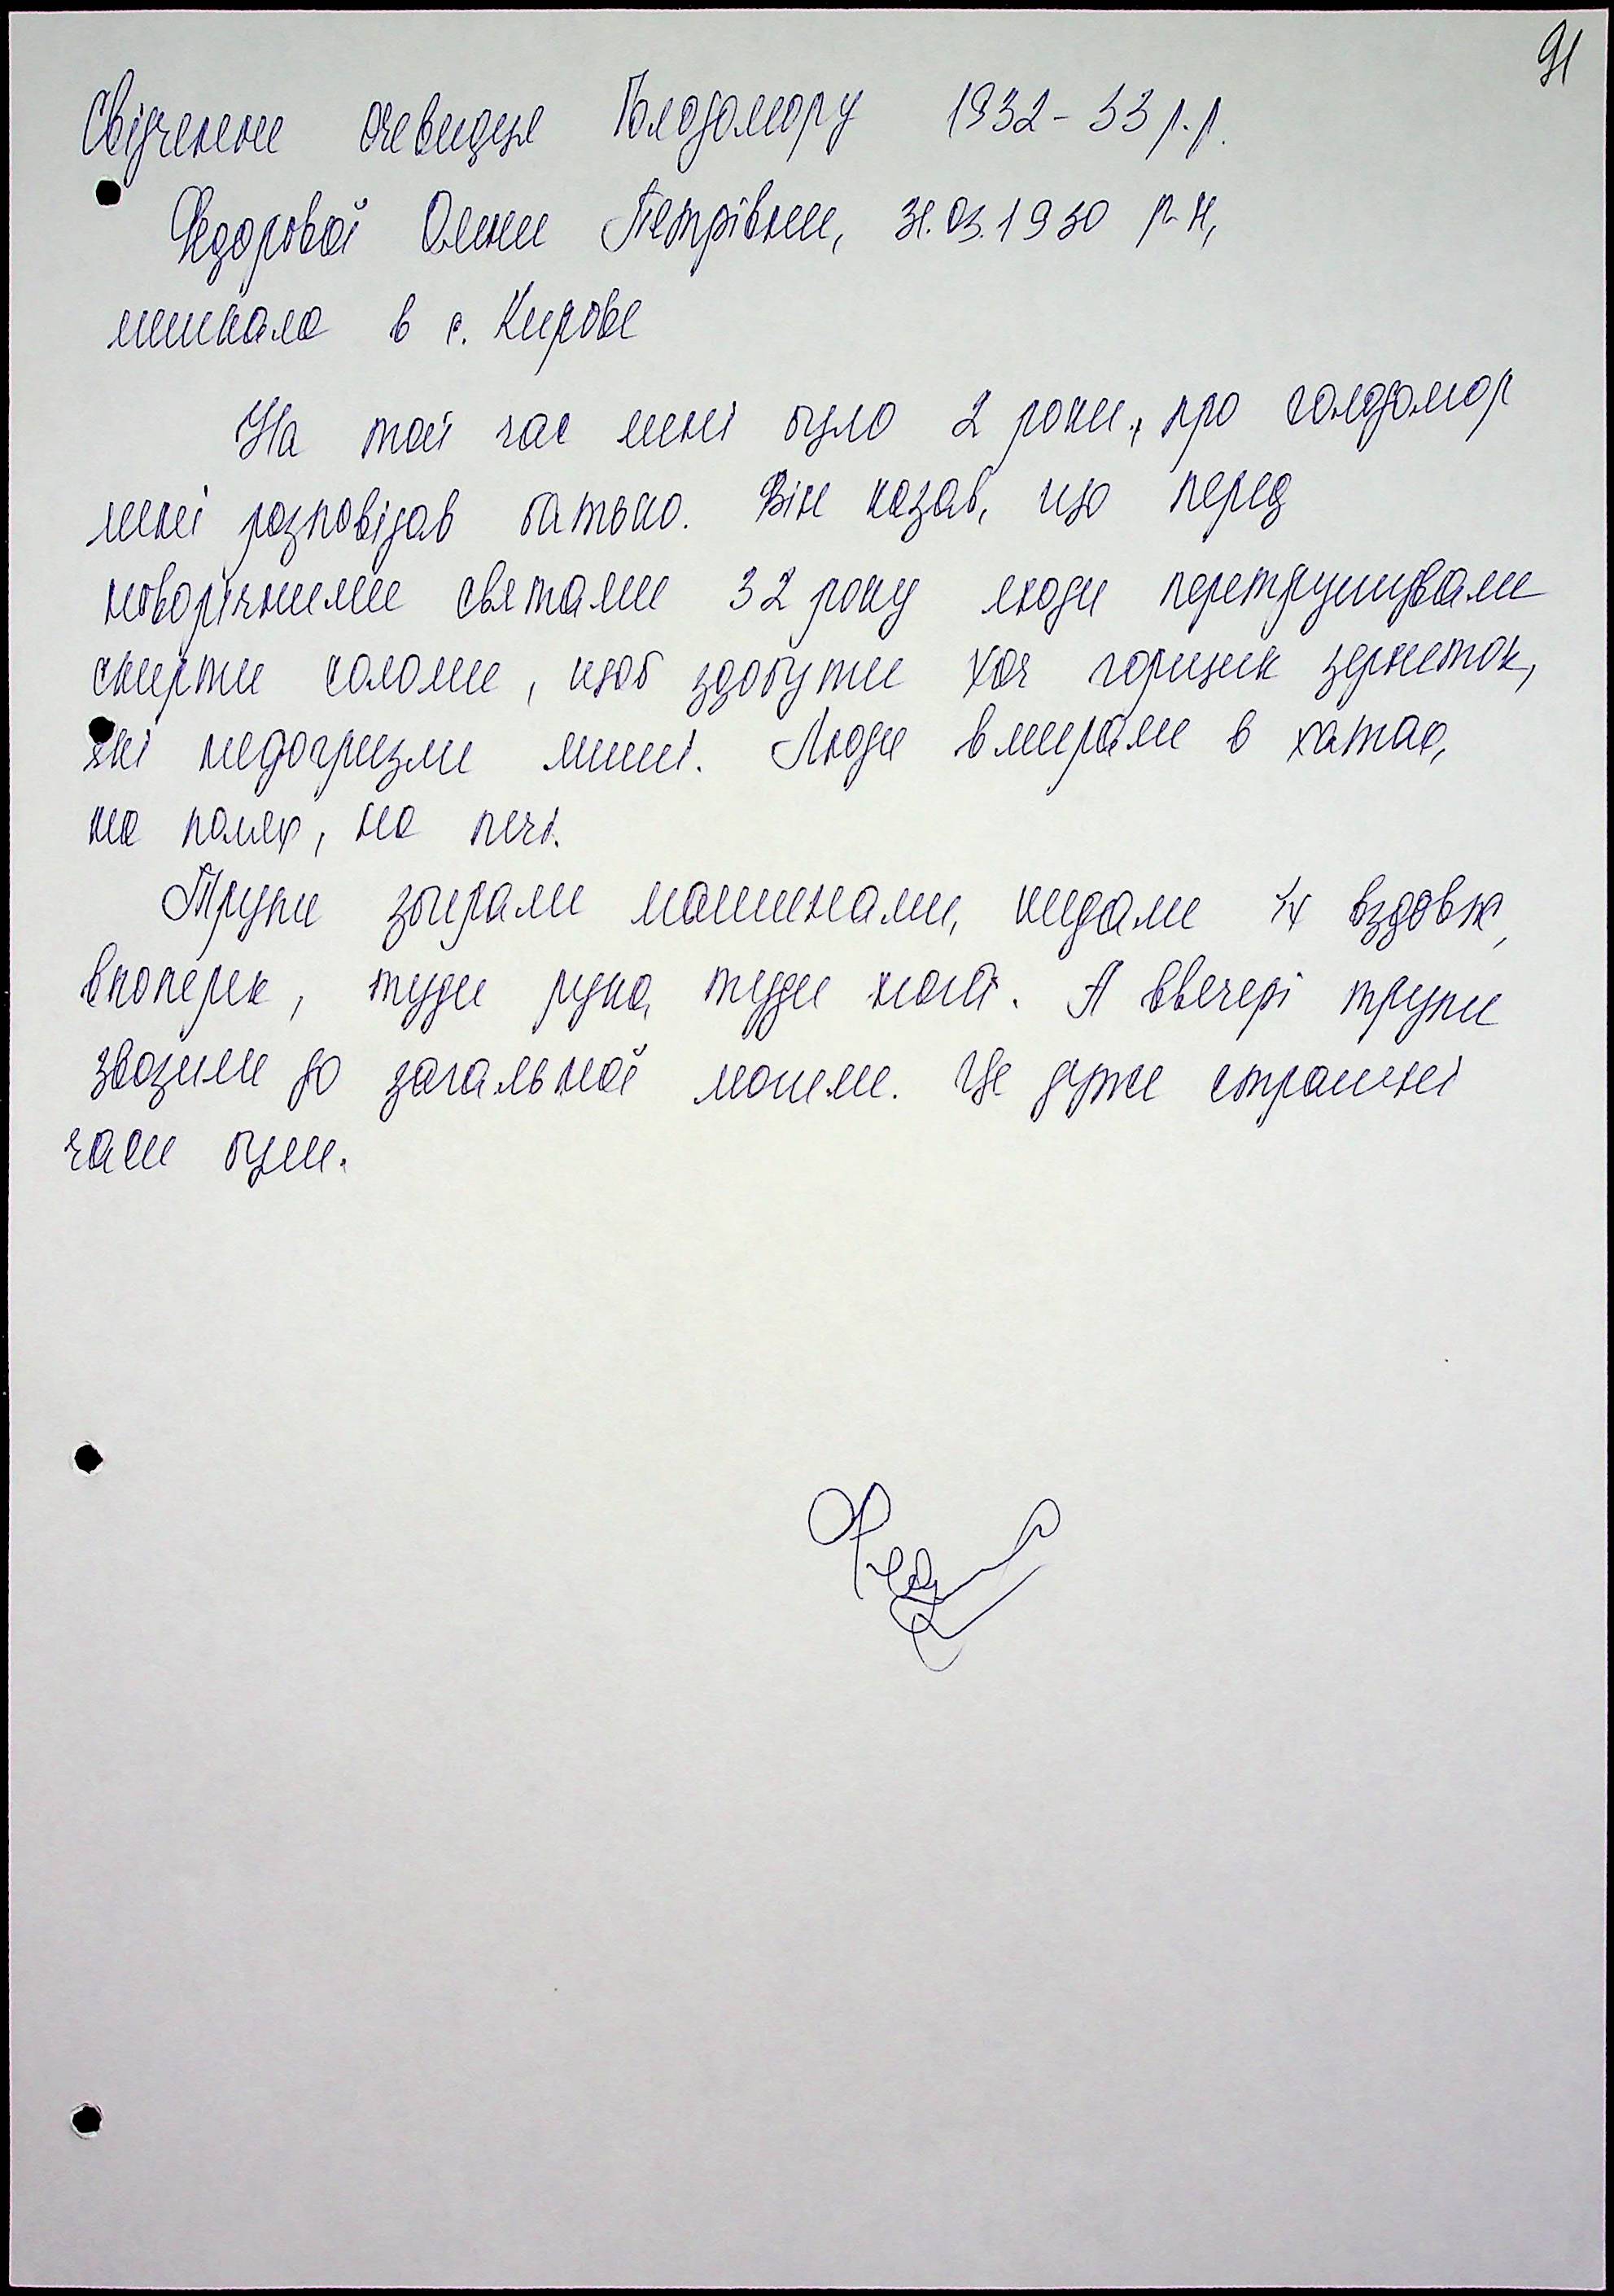 91
Свідчення очевидця Голодомору 1932-33 р.р.
Федорової Олени Петрівни, 31.03.1930 р.н,
мешкала в с. Кирове
На той час мені було 2 роки, про голодомор
мені розповідав батько. Він казав, що перед
новорічними святами 32 року люди перетрушували
скирти соломи, щоб здобути хоч горщик зерняток,
які недогризли миші. Люди вмирали в хатах,
на полях, на печі.
Трупи збирали машинами, кидали їх вздовж,
впоперек, туди рука, туди ноги. А ввечері трупи
звозили до загальної могили. Це дуже страшні
часи були.